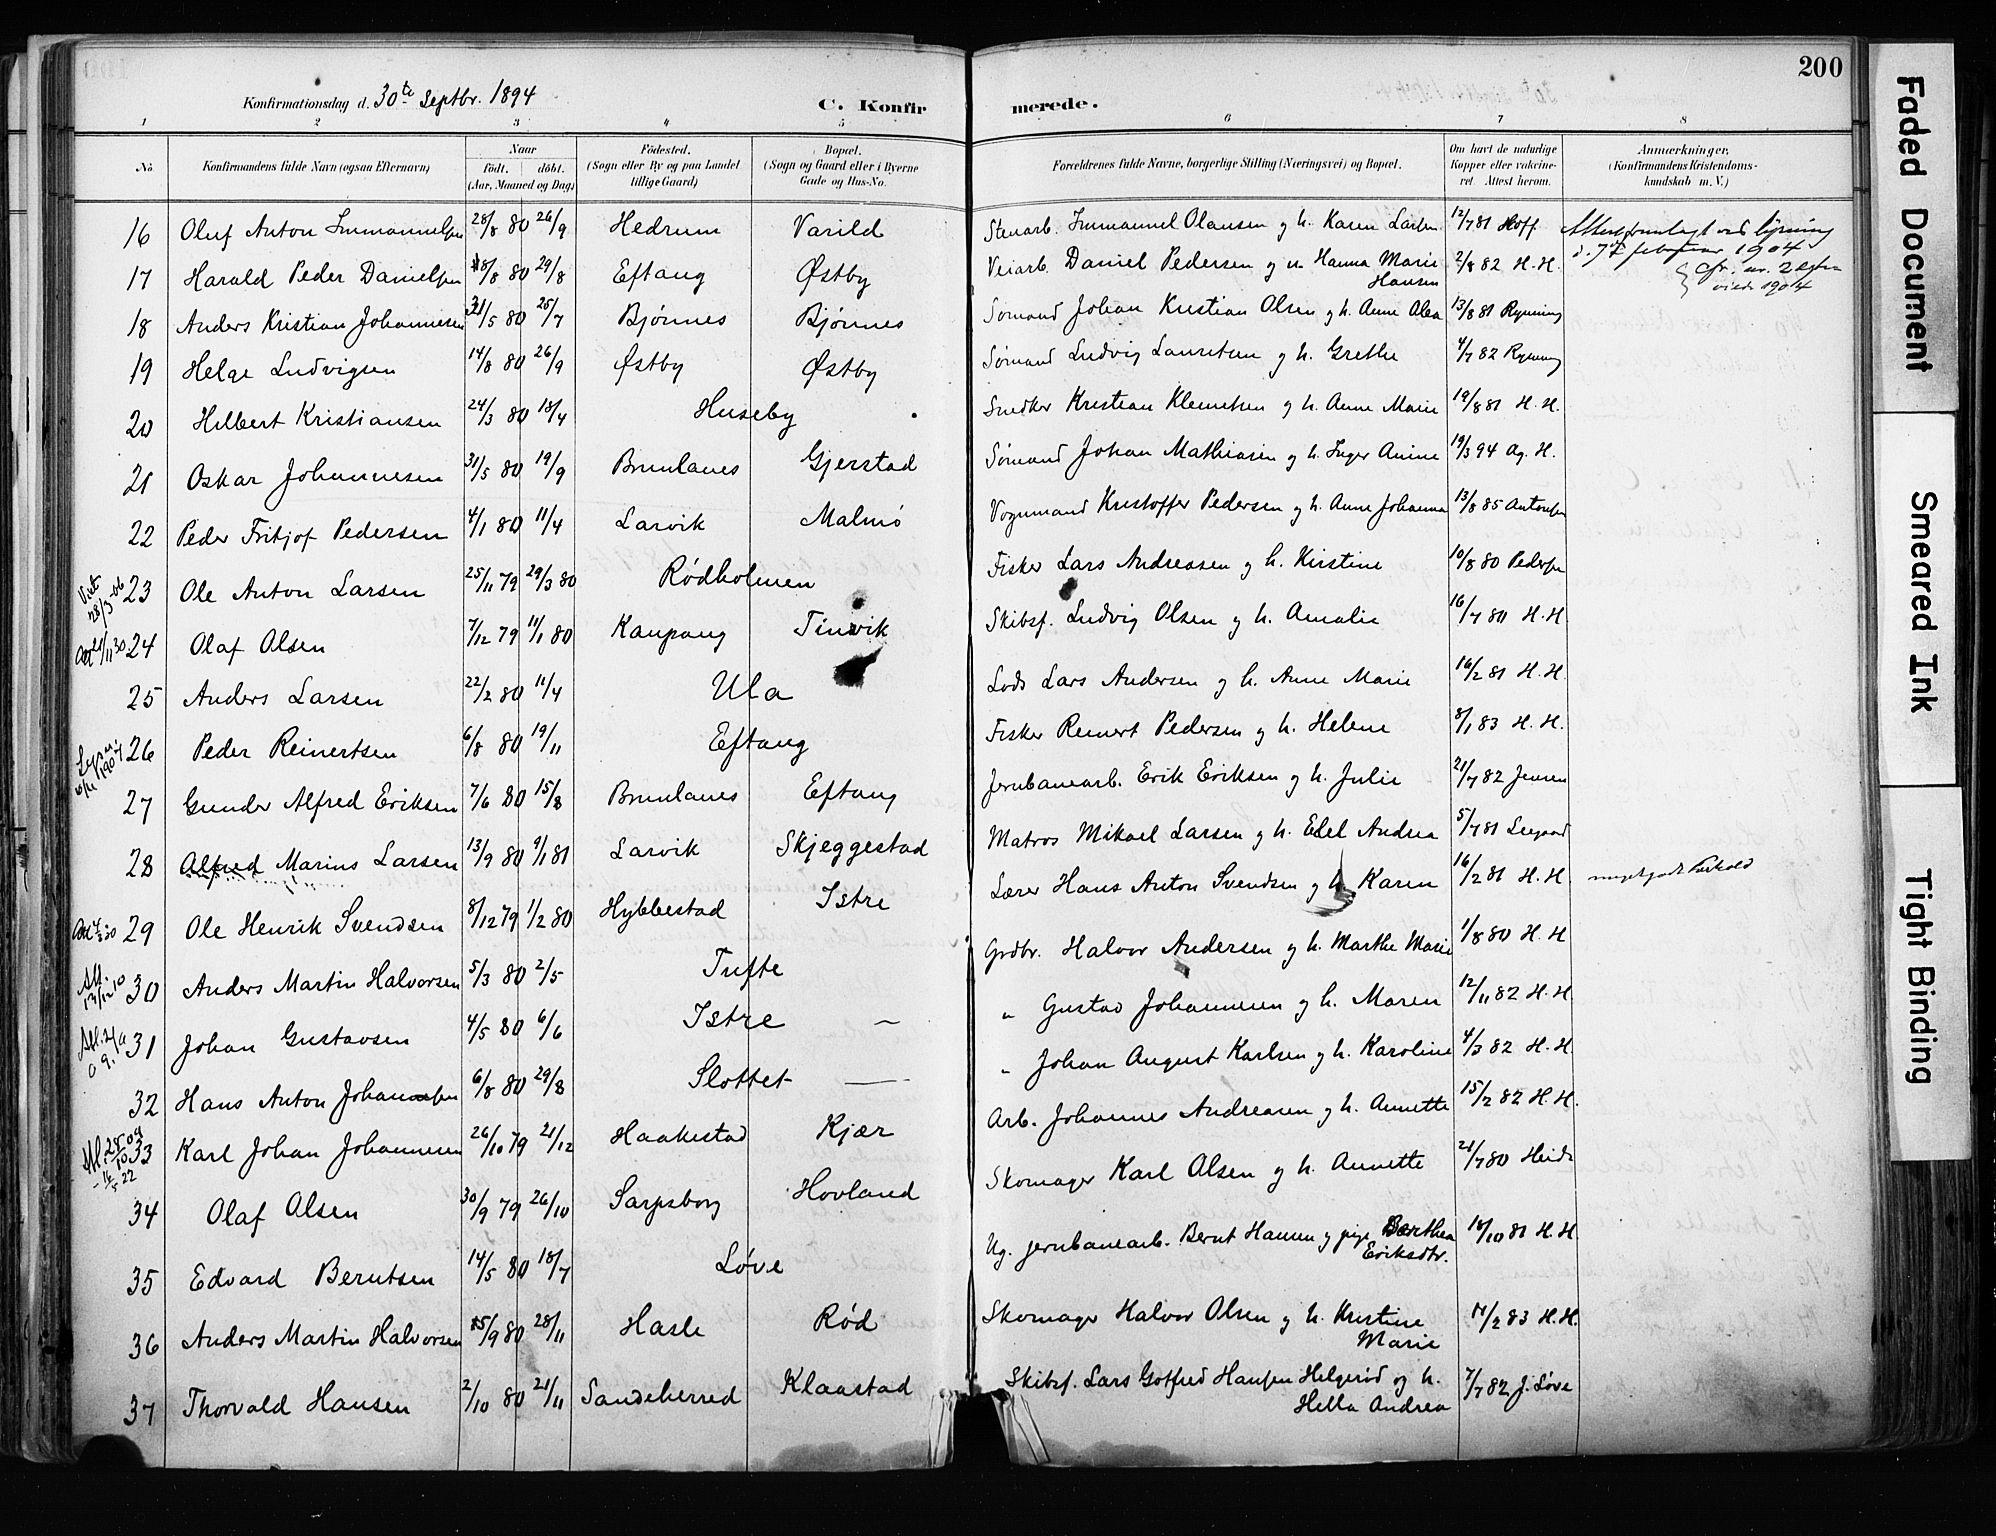 200
Konfirmationsdag d. 30te Septbr. 1894
C. Konfirmerede.
1 2 3 4 5 6 7 8
No. Konfirmandens fulde Navn (ogsaa Efternavn) Naar født. døbt. (Aar, Maaned og Dag) Fødested. (Sogn eller By og paa Landet tillige Gaard) Bopæl. (Sogn og Gaard eller i Byerne Gade og Hus-No. Forældrenes fulde Navne, borgerlige Stilling (Næringsvei) og Bopæl. Om havt de naturlige Kopper eller vakcineret Attest herom. Anmærkninger. (Konfirmandens Kristendomskundskab m. V.)
16 Oluf Anton Immanuelsen 28/8 80 26/9 Hedrum Varild Stenarb. Immanuel Olausen g h. Karen Larsen 12/7 81 Hoff Attest fremlagt ved lysning d. 7de februar 1904 cfr. nr. 2 1904
17 Harald Peder Danielsen 18/8 80 29/8 Eftang Østby Veiarb. Daniel Pedersen g h. Hanna Marie Hansen 2/8 82 H. H.
18 Anders Kristian Johannesen 31/5 80 25/7 Bjønnes Bjønnes Sømand Johan Kristian Olsen g h. Anne Olea 13/8 81 Rynning
19 Helge Ludvigsen 14/8 80 26/9 Østby Østby Sømand Ludvig Lauritsen g h. Grethe 4/7 82 Rynning
20 Hilbert Kristiansen 24/3 80 18/4 Huseby Snedker Kristian Klemetsen g h. Anne Marie 19/8 81 H. H.
21 Oskar Johannesen 31/5 80 19/9 Brunlanes Gjerstad Sømand Johan Mathiasen g h. Inger Anine 19/3 94 Ag. H.
22 Peder Fritjof Pedersen 4/1 80 11/4 Larvik Malmö Vognmand Kristoffer Pedersen g h. Anne Johanna 13/8 85 Antonsen
Viet 28/3-06 23 Ole Anton Larsen 25/11 79 29/3 80 Rødholmen Fisker Lars Andreasen g h. Kirstine 10/8 80 Pedersen
Att 21/11 30. 24 Olaf Olsen 7/12 79 11/1 80 Kaupang Tinvik Skibsf. Ludvig Olsen g h. Amalie 16/7 80 H. H
25 Anders Larsen 22/2 80 11/4 Ula Lods Lars Andersen g h. Anne Marie 16/2 81 H. H.
1907 26 Peder Reinertsen 6/8 80 19/11 Eftang Fisker Reinert Pedersen g h. Helene 8/1 83 H. H.
27 Gunder Alfred Eriksen 7/6 80 15/8 Brunlanes Eftang Jernbanearb. Erik Eriksen g h. Julie 21/7 82 Jensen
28 Alfred Marius Larsen 13/9 80 9/1 81 Larvik Skjeggestad Matros Mikael Larsen g h. Edel Andrea 5/7 81
29 Ole Henrik Svendsen 8/12 79 1/2 80 Hybbestad Istre Lærer Hans Anton Svendsen g h. Karen 16/2 81 H. H meget godt Forhold
Att. 13/12 10 30 Anders Martin Halvorsen 5/3 80 2/5 Tufte Grdbr. Halvor Andersen g h. Marthe Marie 1/8 80 H. H
31 Johan Gustavsen 4/5 80 6/6 Istre — „ Gustav Johannesen g h. Maren 12/11 82 H. H.
32 Hans Anton Johansen 6/8 80 29/8 Slottet — „ Johan August Karlsen g h. Karoline 4/3 82 H. H.
33 Karl Johan Johannesen 26/10 79 21/12 Haakestad Kjær Arb. Johannes Andreasen g h. Annette 15/2 82 H. H.
34 Olaf Olsen 30/9 79 26/10 Sarpsborg Hovland Skomager Karl Olsen g h. Annette 21/7 80 Heide
35 Edvard Berntsen 14/5 80 18/7 Løve Ug. jernbanearb. Bernt Hansen g pige Berthea Eriksdtr. 18/10 81 H. H.
36 Anders Martin Halvorsen 15/9 80 28/11 Hasle Rød Skomager Halvor Olsen g h. Kristine Marie 17/2 83 H. H.
37 Thorvald Hansen 2/10 80 21/11 Sandeherred Klaastad Skibsf. Lars Gotfred Hansen Helgerød og h. Hella Andrea 7/7 82 J. Løve
Faded Document
Smeared Ink
Tight Binding